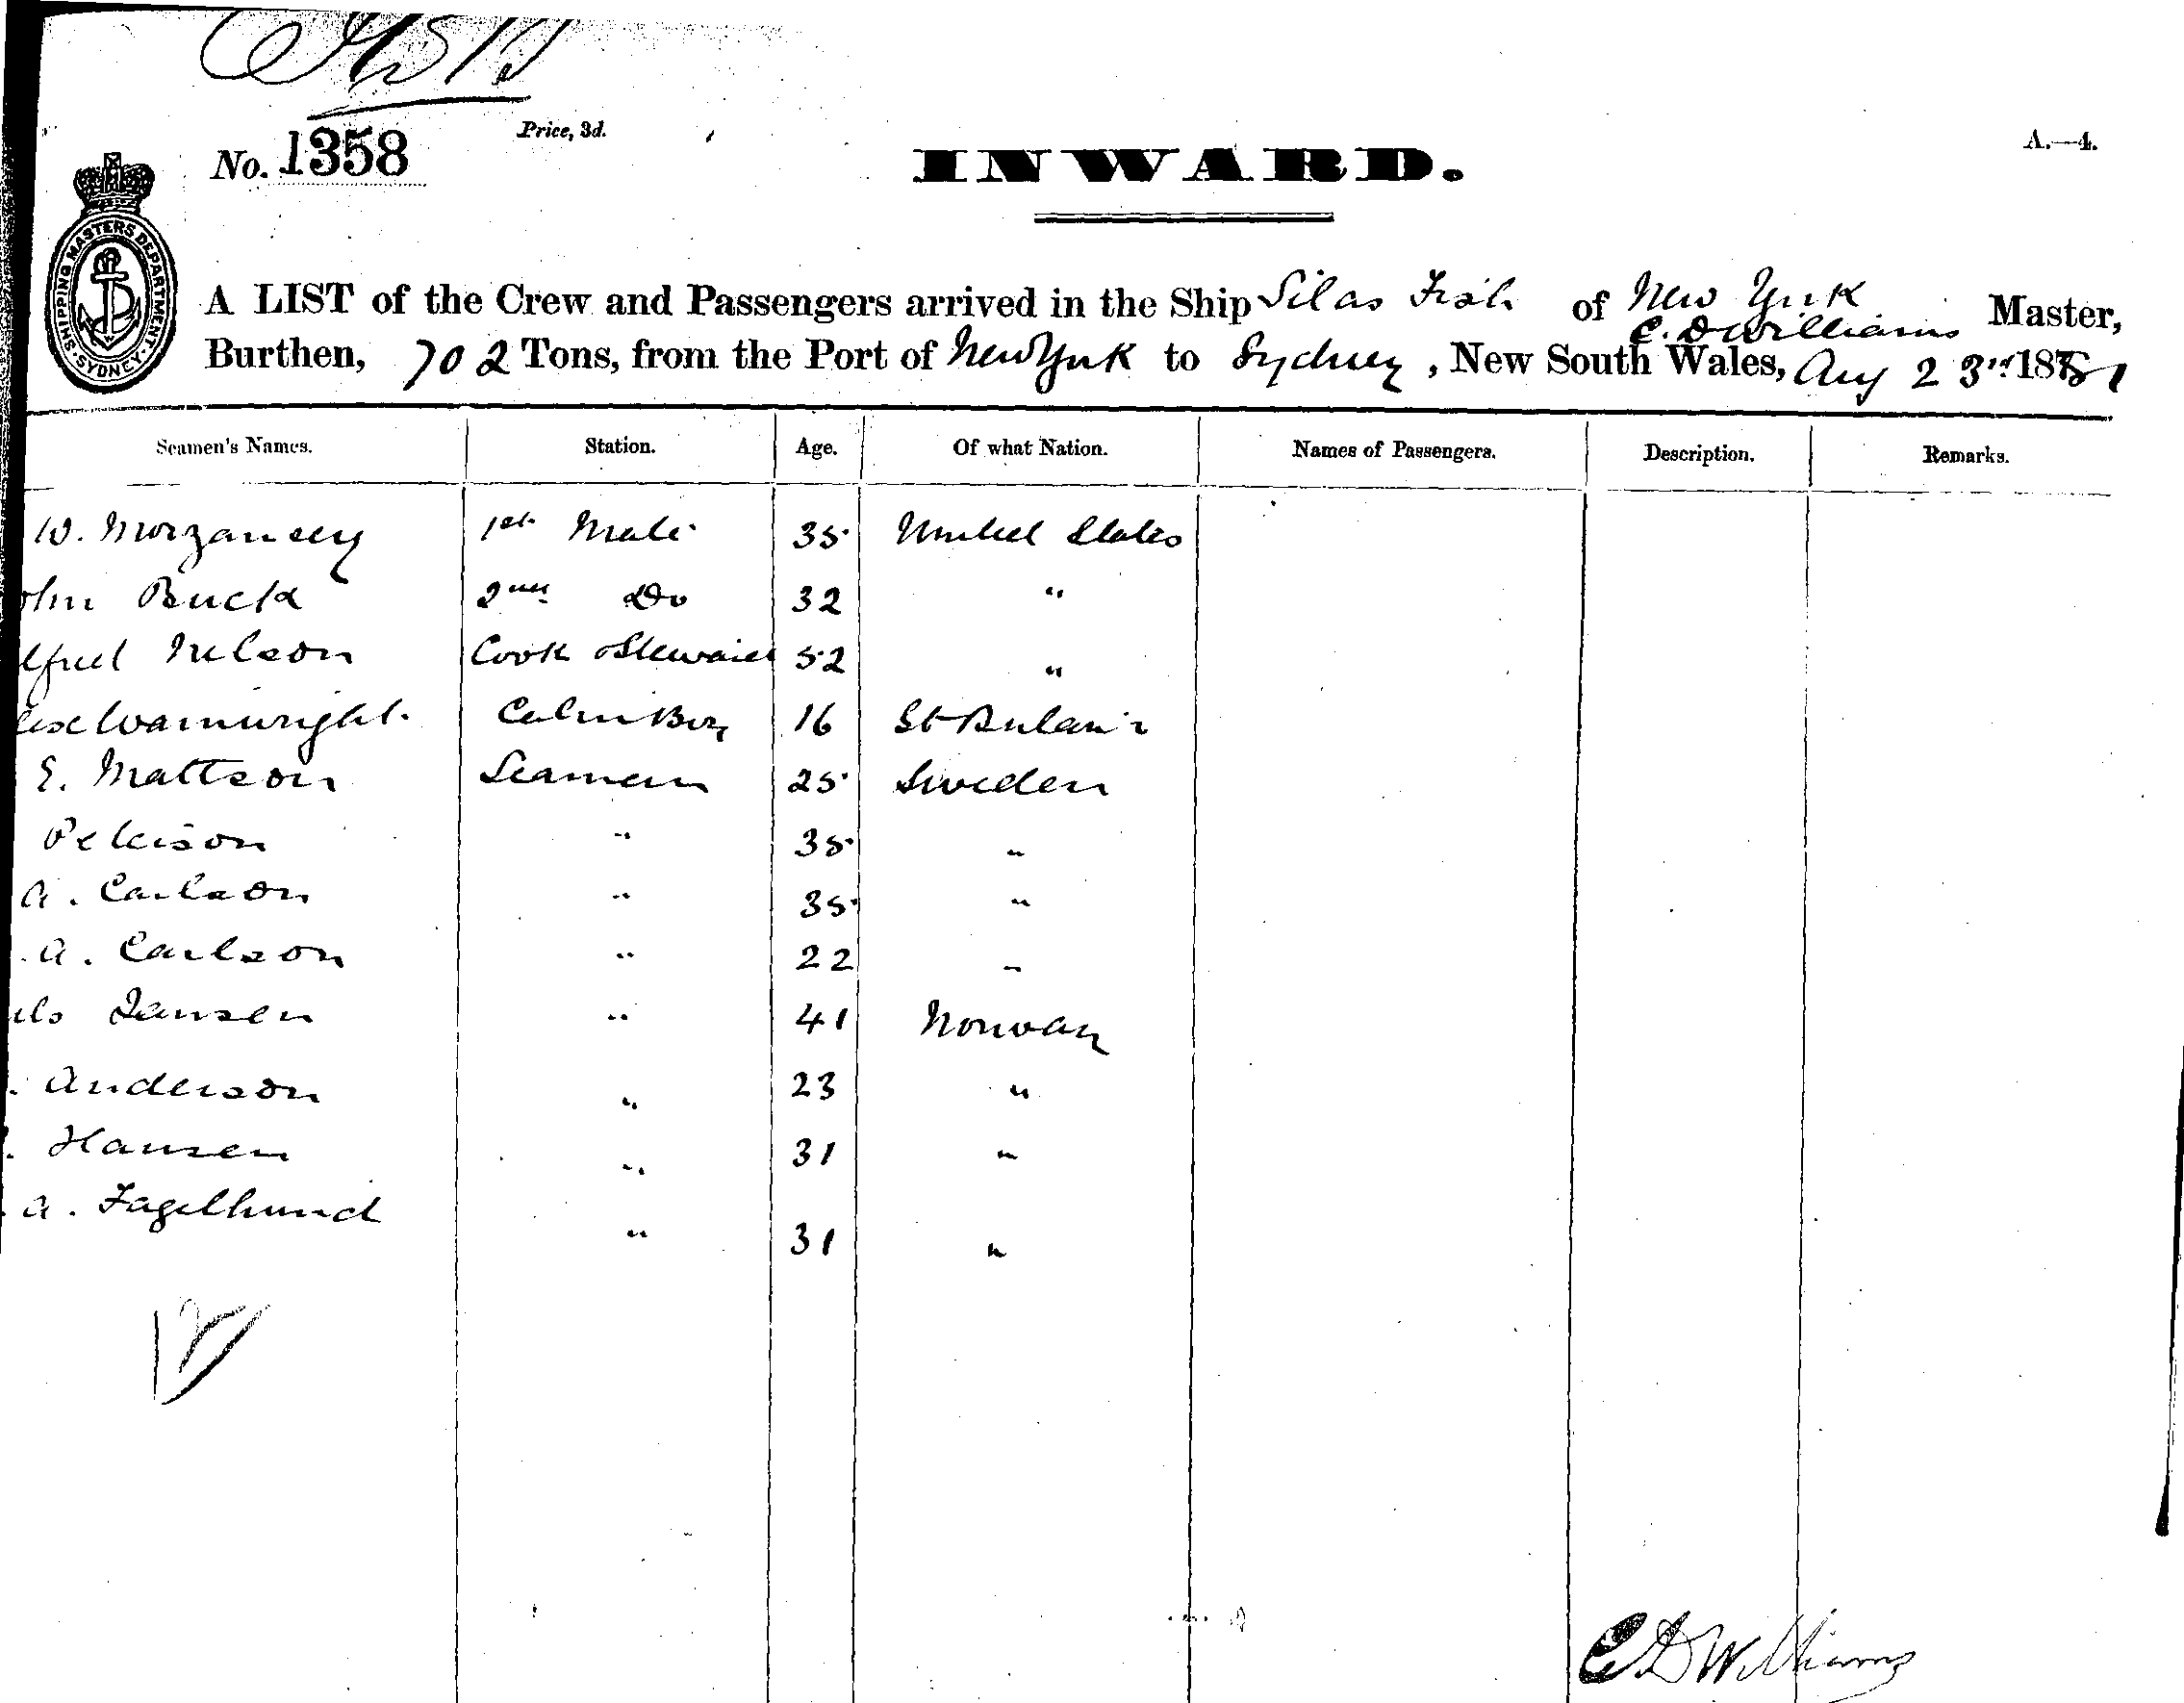 No. 1358
Price, 3d.
INWARD.
A.—4.
SHIPPING MASTERS DEPARTMENT. SYDNEY.
A LIST of the Crew and Passengers arrived in the Ship Silas Fish of New York
C. D Williams Master,
Burthen, 702 Tons, from the Port of New York to Sydney, New South Wales, Aug 23rd 1881
Seamen's Names. Station. Age. Of what Nation. Names of Passengers. Description. Remarks.
W. 1st Mate 35 United States
ohn Buck 2nd Do 32 "
lfred Nelson Cook & Steward 52 "
lex Wainwright. Cabin Boy 16 Gt Britain
E. Mattson Seaman 25 Sweden
Peterson " 35 "
A. Carlson " 35 "
A. Carlson " 22 "
els Jansen " 41 Norway
. Anderson " 23 "
. Hansen " 31 "
. A. Fagelhund " 31 "
12
C D Williams